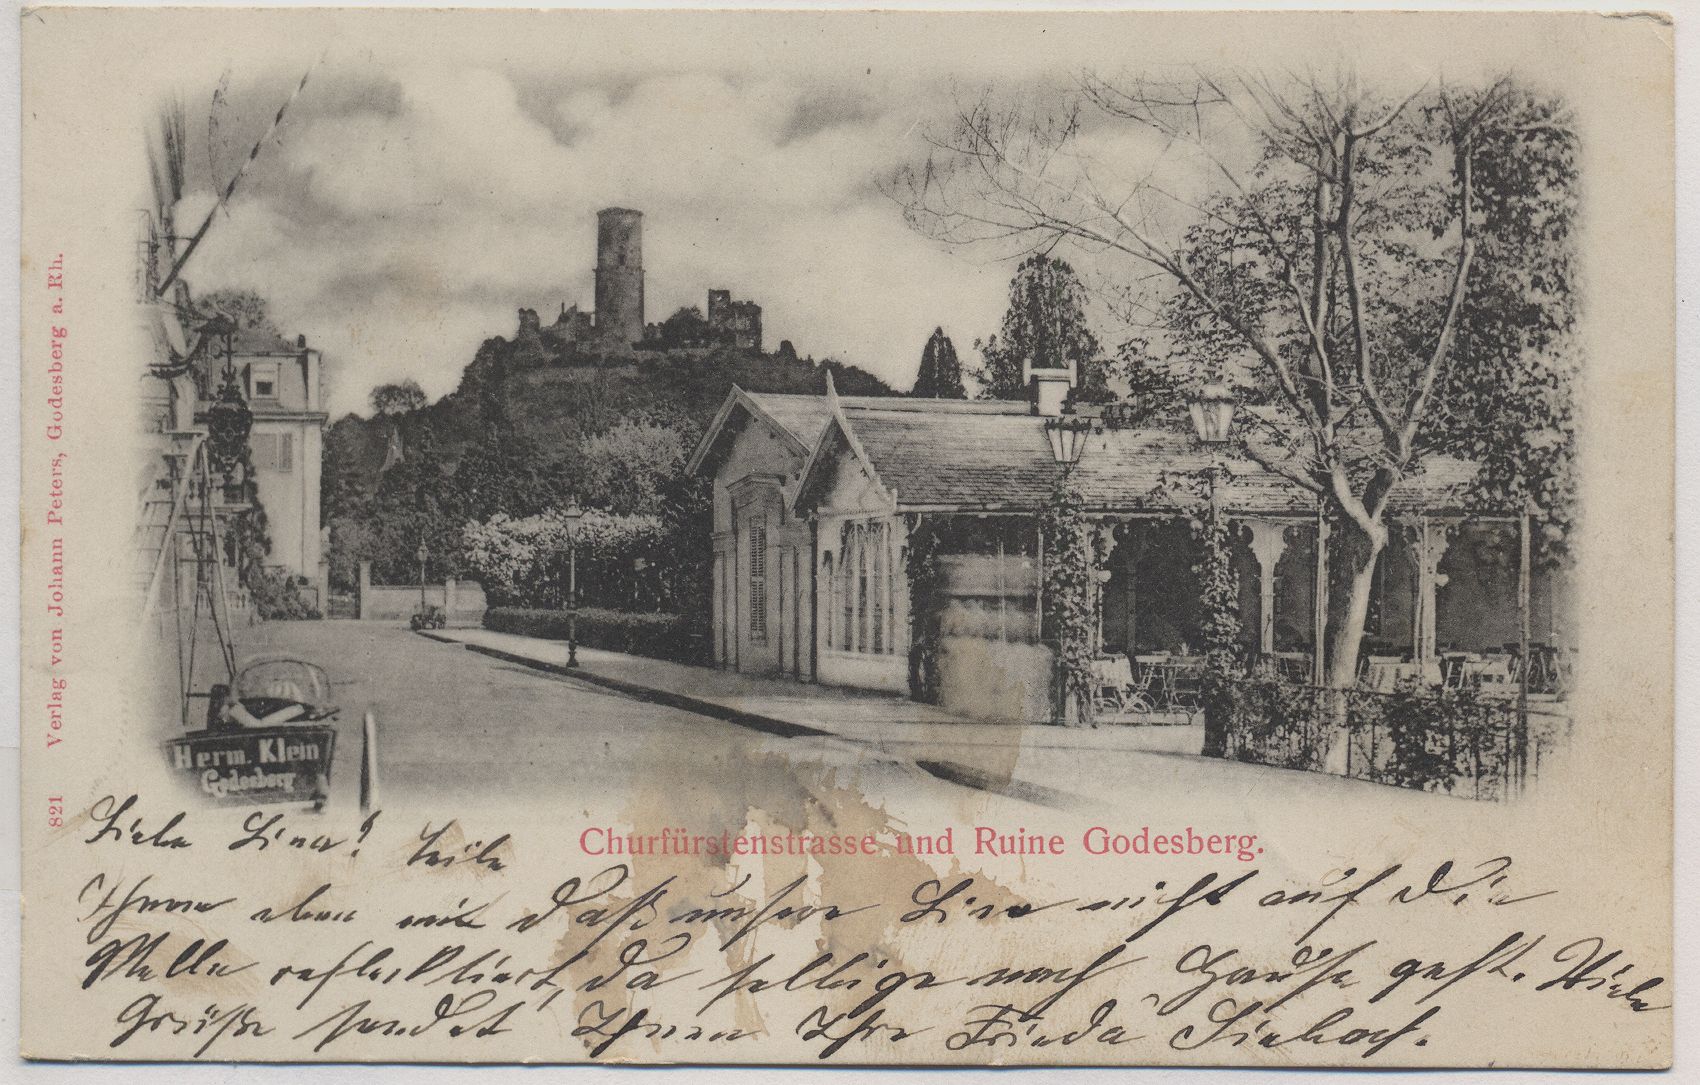 821 Verlag von Johann Peters, Godesberg a. Rh.
Herm. Klein
Godesberg
Churfürstenstrasse und Ruine Godesberg.
Liebe Lina! teile
Ihnen eben mit daß unsere Lina nicht auf die
Stelle reflecktiert, da selbige nach Hause geht. Viele
Grüße sendet Ihnen Ihre Frieda